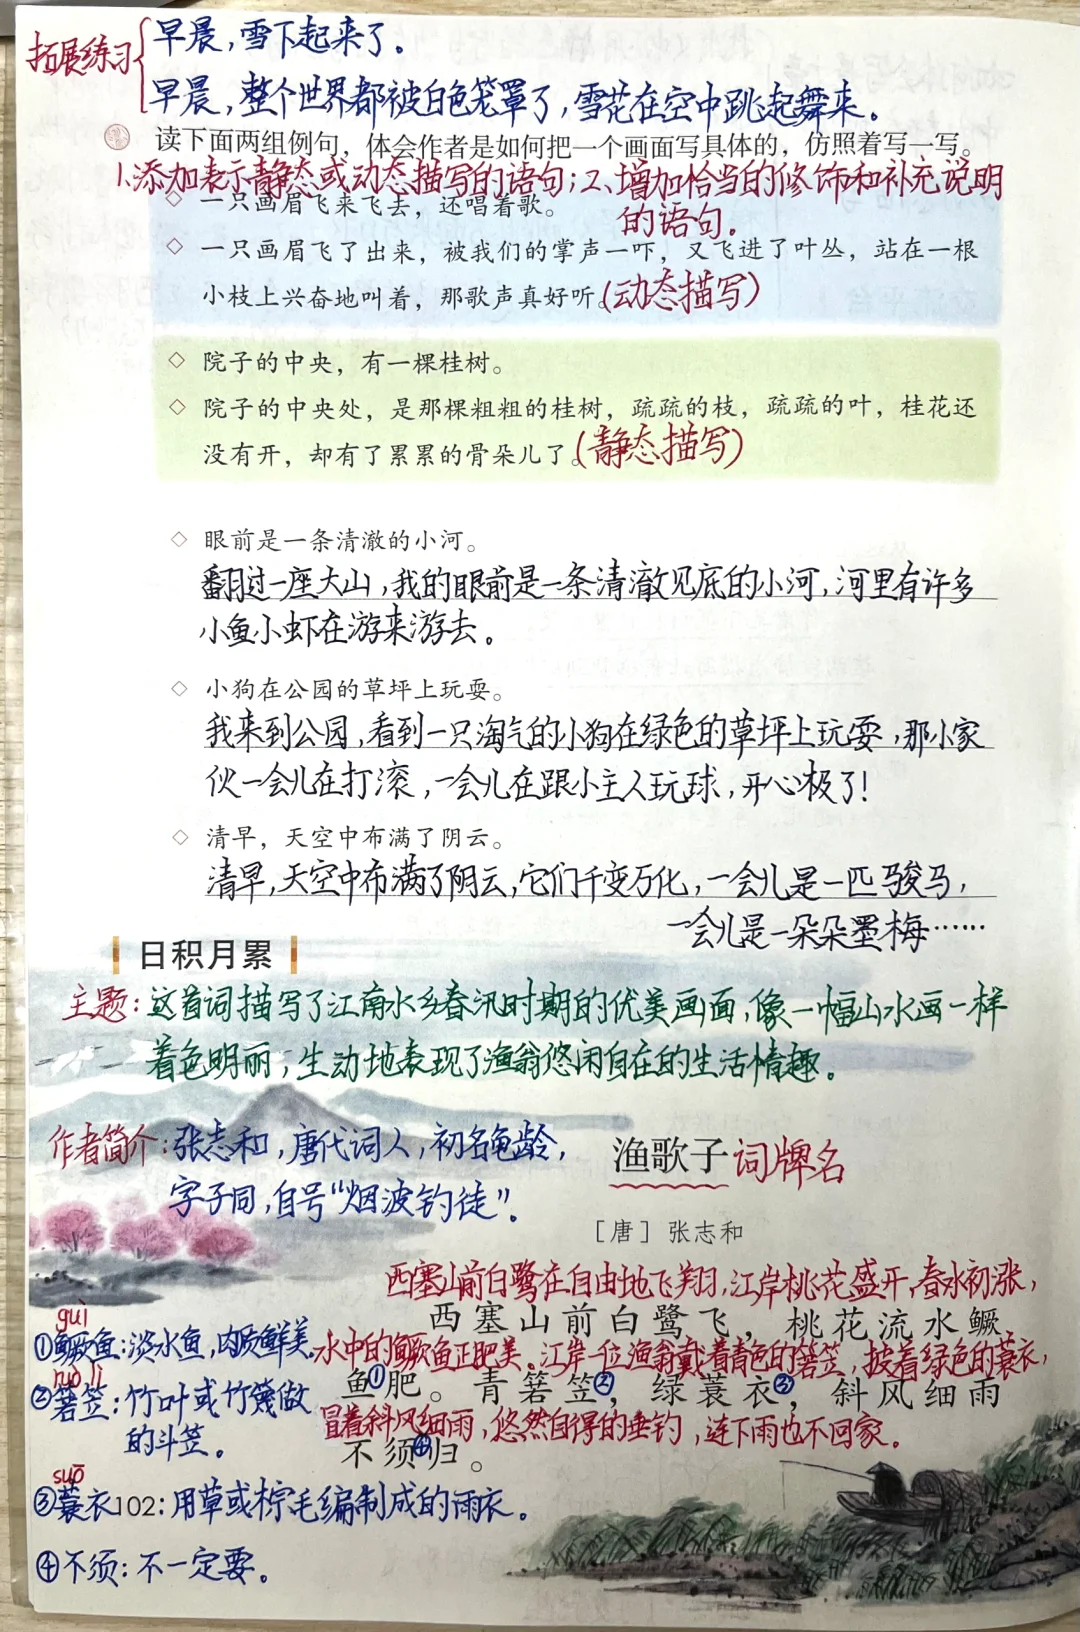 拓展练习
早晨，雪下起来了。
早晨，整个世界都被白色笼罩了，雪花在空中跳起舞来。
读下面两组例句，体会作者是如何把一个画面写具体的，仿照着写一写。
1.添加表示静态或动态描写的语句；2、增加恰当的修饰和补充说明
的语句。
◇ 一只画眉飞来飞去，还唱着歌。
◇ 一只画眉飞了出来，被我们的掌声一吓，又飞进了叶丛，站在一根
小枝上兴奋地叫着，那歌声真好听。(动态描写)
◇ 院子的中央，有一棵桂树。
◇ 院子的中央处，是那棵粗粗的桂树，疏疏的枝，疏疏的叶，桂花还
没有开，却有了累累的骨朵儿了。(静态描写)
◇ 眼前是一条清澈的小河。
翻过一座大山，我的眼前是一条清澈见底的小河，河里有许多
小鱼小虾在游来游去。
◇ 小狗在公园的草坪上玩耍。
我来到公园，看到一只淘气的小狗在绿色的草坪上玩耍，那小家
伙一会儿在打滚，一会儿在跟小主人玩球，开心极了！
◇ 清早，天空中布满了阴云。
清早，天空中布满了阴云，它们千变万化，一会儿是一匹骏马，
一会儿是一朵朵墨梅……
日积月累
主题：这首词描写了江南水乡春汛时期的优美画面，像一幅山水画一样
着色明丽，生动地表现了渔翁悠闲自在的生活情趣。
作者简介：张志和，唐代词人，初名龟龄，
字子同，自号“烟波钓徒”。
渔歌子 词牌名
［唐］张志和
西塞山前白鹭在自由地飞翔，江岸桃花盛开，春水初涨，
西塞山前白鹭飞，桃花流水鳜
水中的鳜鱼正肥美。江岸一位渔翁戴着青色的箬笠，披着绿色的蓑衣，
鱼①肥。青箬笠②，绿蓑衣③，斜风细雨
冒着斜风细雨，悠然自得的垂钓，连下雨也不回家。
不须④归。
guì
①鳜鱼：淡水鱼，肉质鲜美。
ruò lì
②箬笠：竹叶或竹篾做
的斗笠。
suō
③蓑衣102：用草或棕毛编制成的雨衣。
④不须：不一定要。